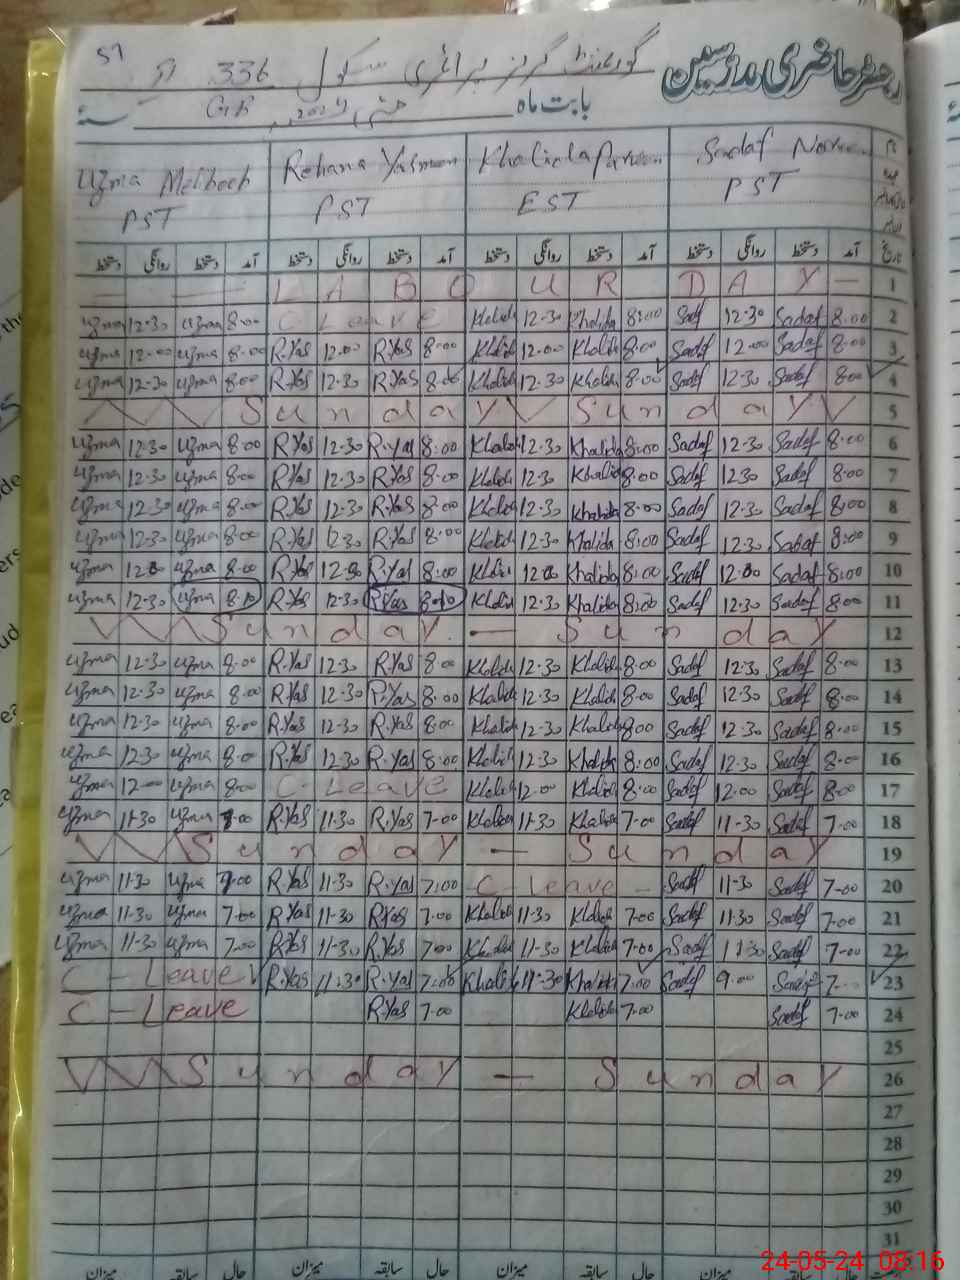 51
رجسٹر حاضری مدرسین گورنمنٹ گرلز پرائمری سکول 336
بابت ماہ مئی 2024 GB سنہ
Uzma Mehboob Rehana Yasmeen Khalida Parveen Sadaf
PST PST EST PST
تاریخ آمد دستخط روانگی دستخط آمد دستخط روانگی دستخط آمد دستخط روانگی دستخط آمد دستخط روانگی دستخط
— — LABOUR DAY — 1
uzma 12.30 uzma 8.00 C Leave Khalida 12.30 Khalida 8:00 Sadf 12.30 Sadaf 8.00 2
uzma 12.00 uzma 8.00 R.Yas 12.00 R.Yas 8.00 Khalida 12.00 Khalida 8.00 Sadaf 12.00 Sadaf 8.00 3
uzma 12.30 uzma 8.00 R.Yas 12.30 R.Yas 8.00 Khalida 12.30 Khalida 8.00 Sadaf 12.30 Sadaf 8.00 4
Sunday Sunday 5
uzma 12.30 uzma 8.00 R.Yas 12.30 R.Yas 8.00 Khalida 12.30 Khalida 8.00 Sadaf 12.30 Sadaf 8.00 6
uzma 12.30 uzma 8.00 R.Yas 12.30 R.Yas 8.00 Khalida 12.30 Khalida 8.00 Sadaf 12.30 Sadaf 8.00 7
uzma 12.30 uzma 8.00 R.Yas 12.30 R.Yas 8.00 Khalida 12.30 Khalida 8.00 Sadaf 12.30 Sadaf 8.00 8
uzma 12.30 uzma 8.00 R.Yas 12.30 R.Yas 8.00 Khalida 12.30 Khalida 8:00 Sadaf 12.30 Sadaf 8.00 9
uzma uzma 8.00 R.Yas R.Yas 8.00 Khalida Khalida 8:00 Sadaf 12.00 Sadaf 8:00 10
uzma 12.30 uzma 8.10 R.Yas 12.30 R.Yas 8.10 Khalida 12.30 Khalida 8:00 Sadaf 12.30 Sadaf 8.00 11
Sunday — Sunday 12
uzma 12.30 uzma 8.00 R.Yas 12.30 R.Yas 8.00 Khalida 12.30 Khalida 8.00 Sadaf 12.30 Sadaf 8.00 13
uzma 12.30 uzma 8.00 R.Yas 12.30 R.Yas 8.00 Khalida 12.30 Khalida 8.00 Sadaf 12.30 Sadaf 8.00 14
uzma 12.30 uzma 8.00 R.Yas 12.30 R.Yas 8.00 Khalida 12.30 Khalida 8.00 Sadaf 12.30 Sadaf 8.00 15
uzma 12.30 uzma 8.00 R.Yas 12.30 R.Yas 8.00 Khalida 12.30 Khalida 8:00 Sadaf 12.30 Sadaf 8.00 16
uzma 12.00 uzma 8.00 C-Leave Khalida 12.00 Khalida 8.00 Sadaf 12.00 Sadaf 8.00 17
uzma 11.30 uzma 7.00 R.Yas 11.30 R.Yas 7.00 Khalida 11.30 Khalida 7.00 Sadaf 11-30 Sadaf 7.00 18
Sunday — Sunday 19
uzma 11.30 uzma 7.00 R.Yas 11.30 R.Yas 7.00 C-Leave — Sadaf 11-30 Sadaf 7-00 20
uzma 11-30 uzma 7.00 R.Yas 11-30 R.Yas 7.00 Khalida 11-30 Khalida 7.00 Sadaf 11.30 Sadaf 7-00 21
uzma 11-30 uzma 7.00 R.Yas 11-30 R.Yas 7.00 Khalida 11-30 Khalida 7.00 Sadaf 11.30 Sadaf 7-00 22
C — Leave R.Yas 11.30 R.Yas 7.00 Khalida 11-30 Khalida 7.00 Sadaf 9.00 Sadaf 23
C — Leave R.Yas 7.00 Khalida 7.00 Sadaf 7.00 24
25
Sunday — Sunday 26
27
28
29
30
31
حال سابقہ میزان حال سابقہ میزان حال سابقہ میزان
24-05-24 08:16